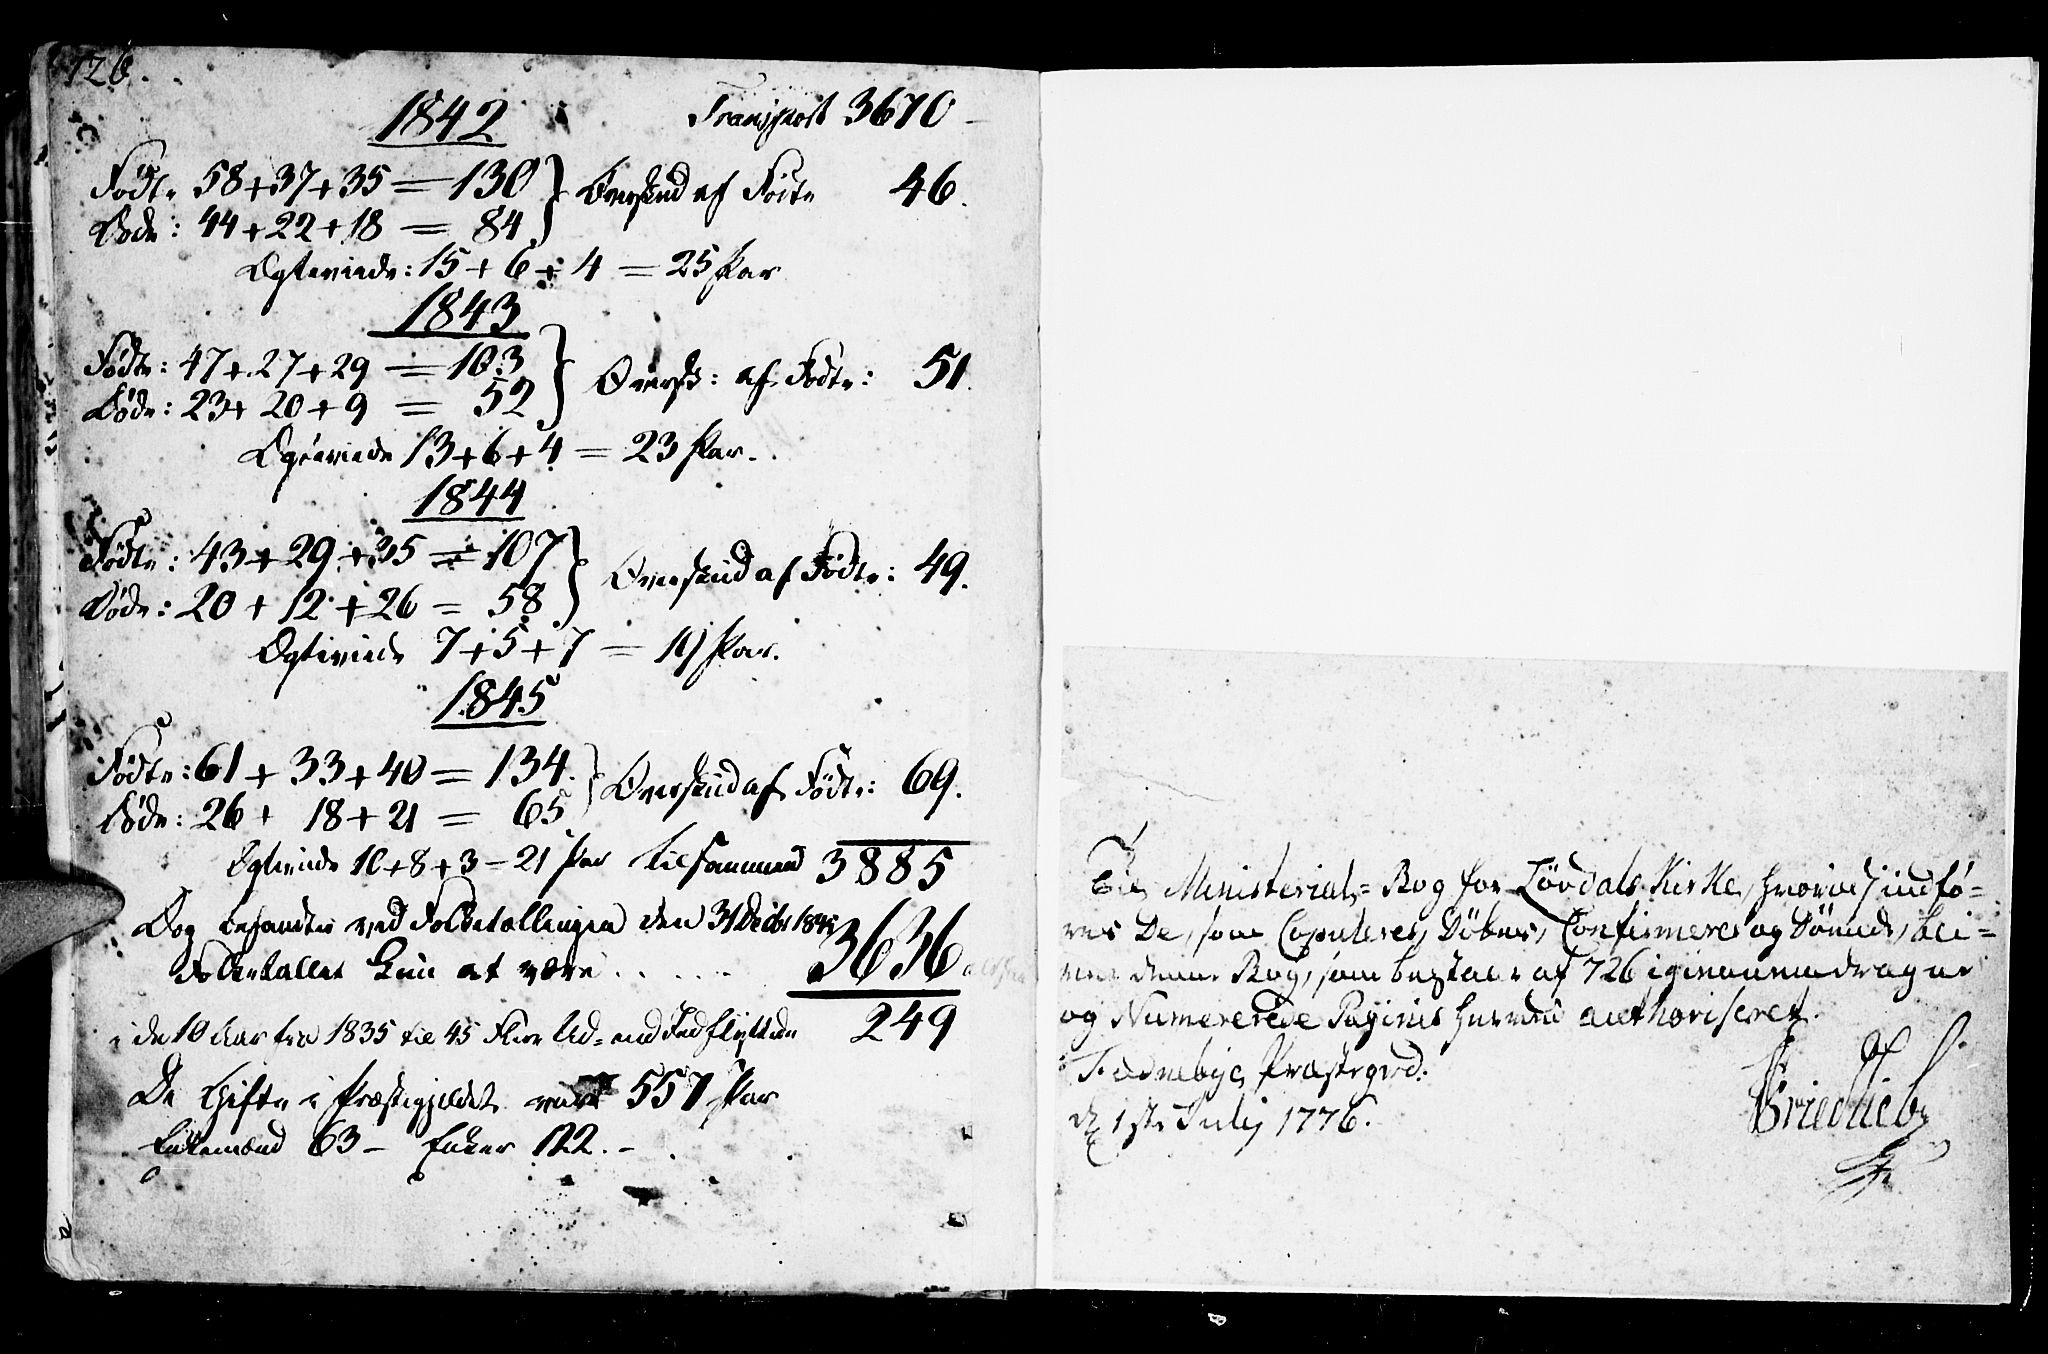 126.
1842
Transport 3670 –
Födte 58+37+35 = 130 } Overskud af Födte 46.
Döde: 44+22+18 = 84
Egteviede: 15+6+4 = 25 Par
1843
Födte: 47+27+29 = 103 } Oversk: af Födte: 51.
Döde: 23+20+9 = 52
Egteviede 13+6+4 = 23 Par.
1844
Födte: 43+29+35 = 107 } Overskud af Födte: 49.
Döde: 20+12+26 = 58
Egteviede 7+5+7 = 19 Par.
1845
Födte: 61+33+40 = 134. } Overskud af Födte: 69.
Döde: 26+18+21 = 65.
Egteviede 10+8+3 = 21 Par tilsammen 3885
Dog befandtes ved Folketællingen den 31 Decbr 1845
Folketallet kun at være . . . . . 3636
i de 10 Aar fra 1835 til 45 flere Ud- end Indflyttede 249
De Gifte i Præstegjeldet vare 557 Par
Enkemænd 63 – Enker 122. –
Ministerial-Bog for Lövdals Kirke, hvorved indfö-
res De, som Copuleres, Döbes, Confirmeres og Dömede, bli-
ver denne Bog, som bestaaer af 726 igiennemdragne
og Numererede Paginis herved authoriseret.
Præstegrd:
d 1ste Julij 1776.